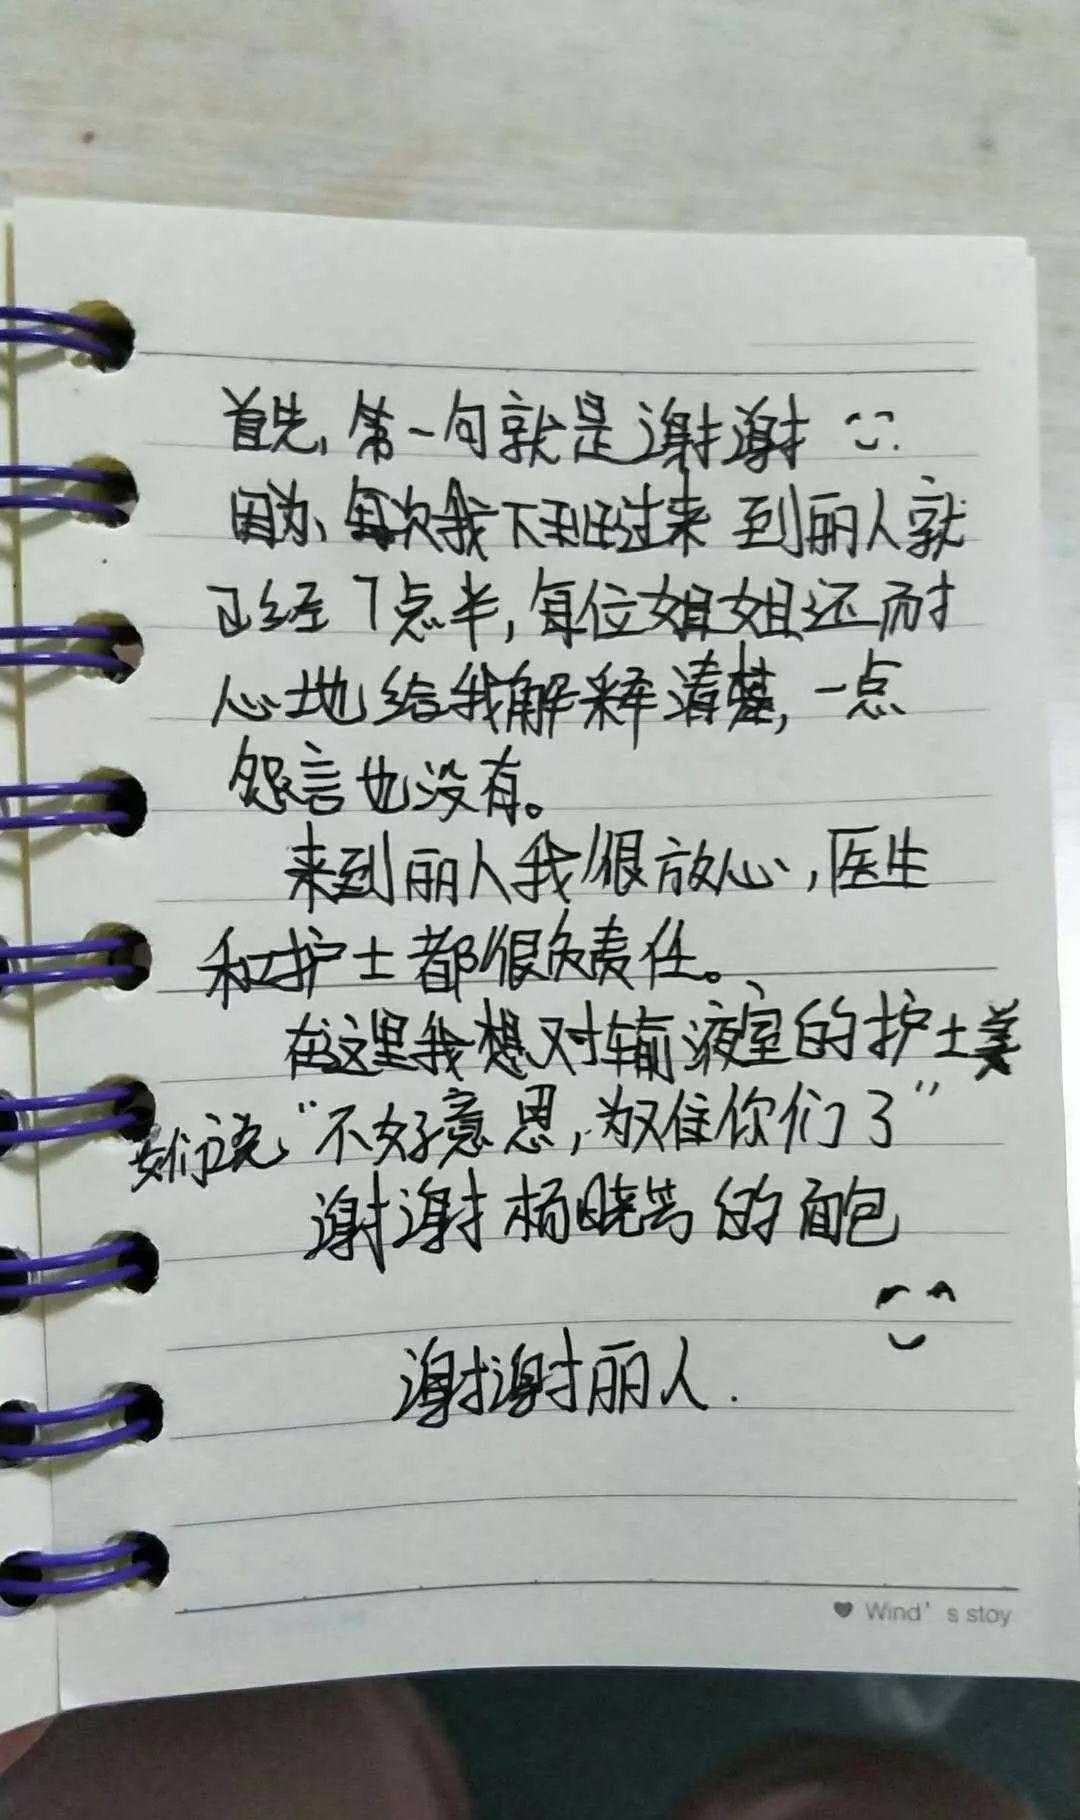 首先,第一句就是谢谢
因为、每次我下班过来到丽人就
已经7点半,每位姐姐还耐
心地给我解释清楚,一点
怨言也没有。
来到丽人我很放心,医生
和护士都很负责任。
在这里我想对输液室的护士美
女们说“不好意思,为难你们了”
谢谢杨晓芳的面包
谢谢丽人.
Wind's stoy